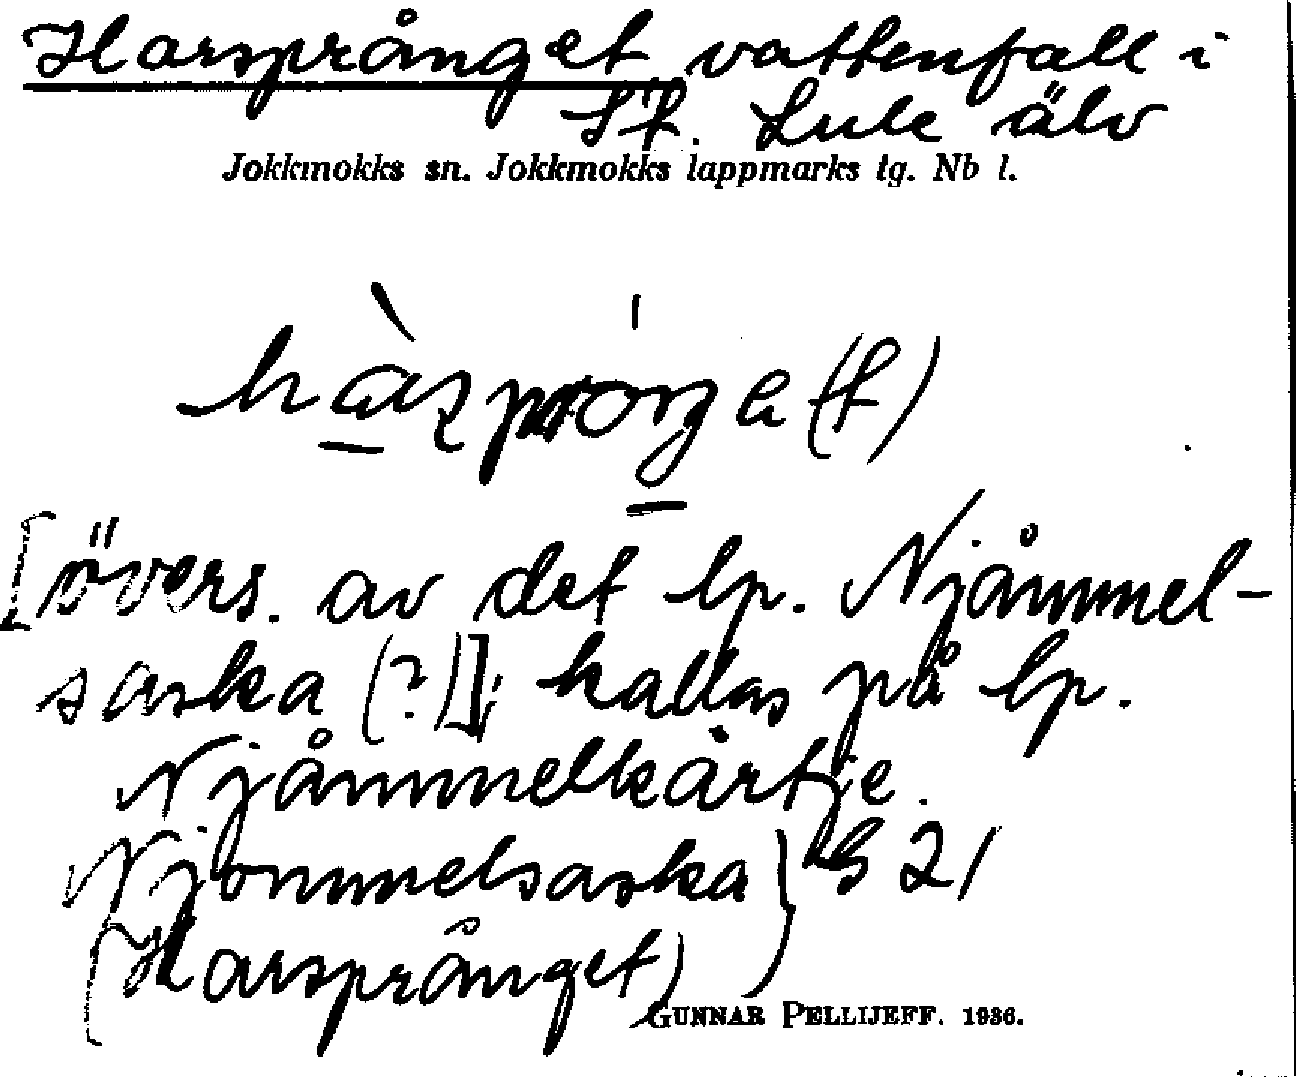 Harsprånget vattenfall i
St. Lule älv
Jokkmokks sn. Jokkmokks lappmarks tg. Nb l.
[övers. av det lp. Njåmmel-
saska (?)]; kallas på lp.
Njåmmelkårtje.
Njommelsaska } S 21
(Harsprånget)
GUNNAR PELLIJEFF. 1936.